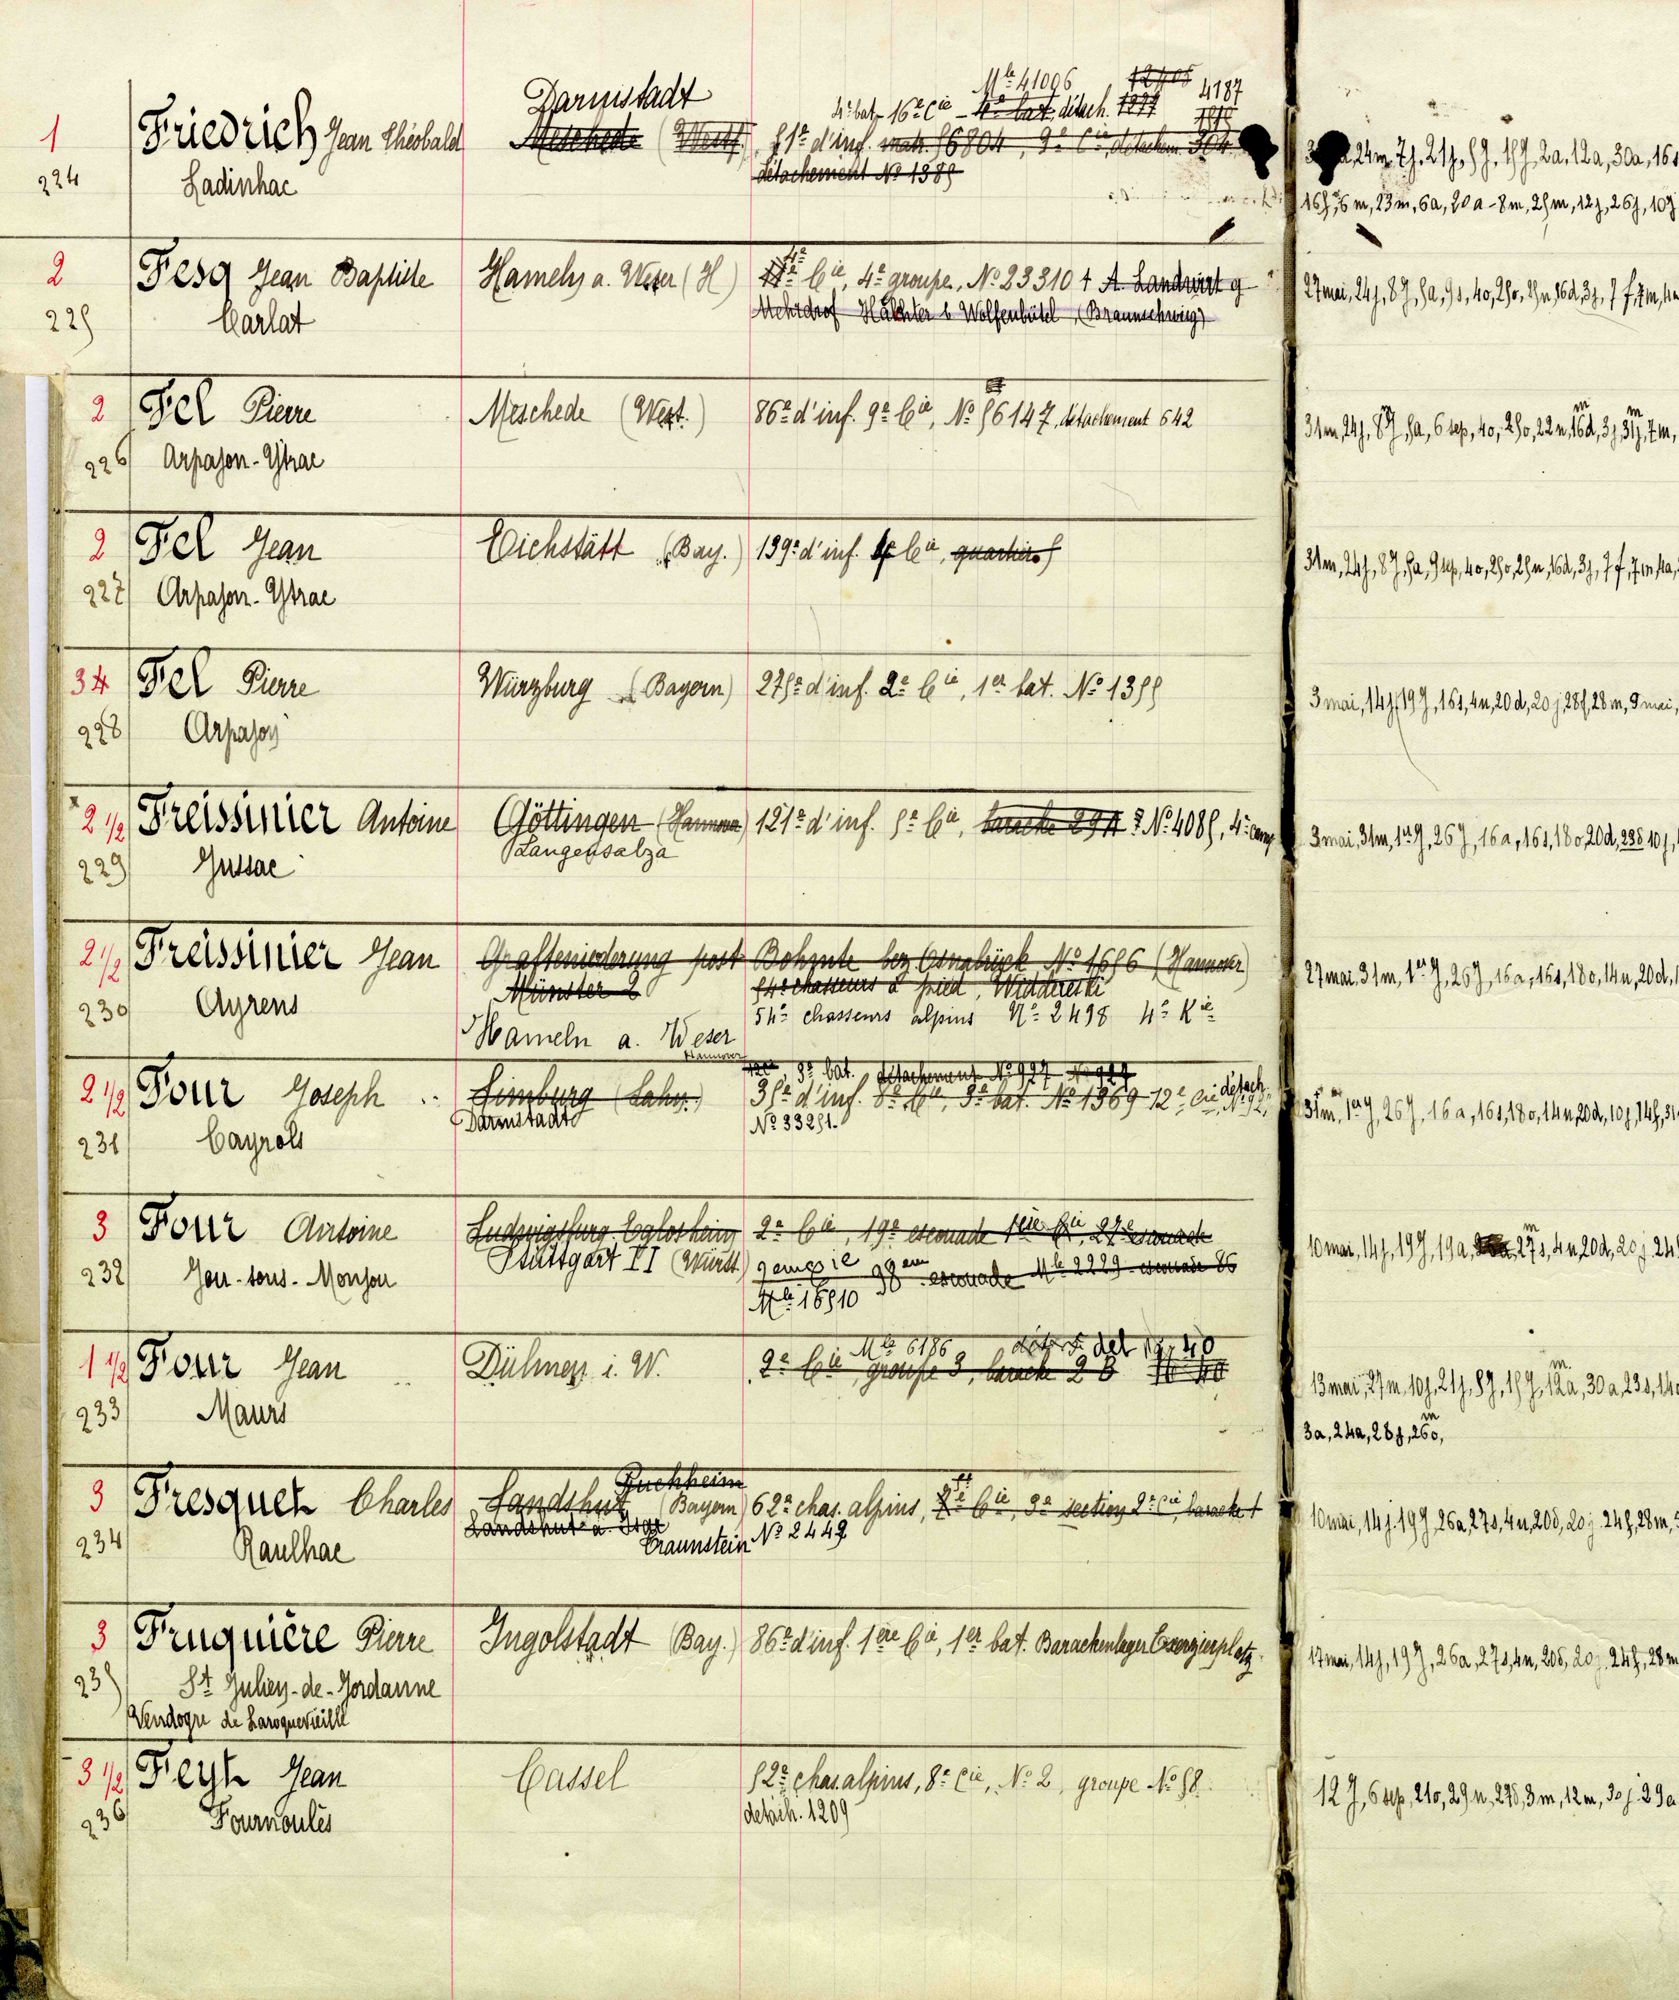 Mle 41006 12405 4187
Darmstadt 4e bat - 16e Cie - 4e bat, détach.
1 Friedrich Jean Théobald Meschede (Westf. 51e d'inf. matr. 56804, 9e Cie, détachem. 304 24m, 7j, 21j, 5J, 15J, 2a, 12a, 30a, 16s
224 Ladinhac détachement No 1385
6m, 23m, 6a, 20a - 8m, 25m, 12j, 26j, 10J
2 Fesq Jean Baptiste Hameln a. Weser (H) Cie, 4e groupe, No 23310 + A. Landwirt g 27 mai, 24j, 8J, 5a, 9s, 4o, 25o, 25n, 16d, 3j, 7f, 7m,
225 Carlat Mehrdrof Hächter b Wolfenbütel, (Braunschweig)
2 Fel Pierre Meschede (West.) 86e d'inf. 9e Cie, No 56147, détachement 642 31m, 24j, 8J, 5a, 6 sep, 4o, 25o, 22n, 16d, 3j, 31j, 7m,
226 Arpajon - Ytrac
2 Fel Jean Eichstätt (Bay.) 139e d'inf. 4e Cie, quartier 5 31m, 24j, 8J, 5a, 9 sep, 4o, 25o, 25n, 16d, 3j, 7f, 7m, 4a,
227 Arpajon - Ytrac
3 Fel Pierre Würzburg (Bayern) 275e d'inf. 2e Cie, 1er bat. No 1355 3 mai, 14j, 19J, 16s, 4n, 20d, 20j, 28f, 28m, 9 mai,
228 Arpajon
2 1/2 Freissinier Antoine Göttingen (Hannover) 121e d'inf. 5e Cie, baracke 29A No 4085, 4e camp 3 mai, 31m, 1er J, 26J, 16a, 16s, 18o, 20d, 23d, 10j,
Langensalza
229 Jussac
2 1/2 Freissinier Jean Grafteniederung post Bohmte bez Osnabrück No 1656 (Hannover) 27 mai, 31m, 1er J, 26J, 16a, 16s, 18o, 14n, 20d,
Münster 2 54e chasseurs à pied, Widdereski
230 Ayrens 54e chasseurs alpins No 2498 4e Kie
Hameln a. Weser
Hannover
12e, 3e bat. détachement No 927 No 927
2 1/2 Four Joseph Limburg (Lahn.) 35e d'inf. 8e Cie, 3e bat. No 1369 12e Cie détach. 31m, 1er J, 26J, 16a, 16s, 18o, 14n, 20d, 10j, 14f,
Darmstadt No 33251.
231 Cayrols
3 Four Antoine Ludwigsburg. Eglosheim 2e Cie, 19e escouade 1ère Cie, 27e escouade 10 mai, 14j, 19J, 19a, 27s, 4n, 20d, 20j, 24f
Stuttgart II (Württ.) 9eme Cie 98em escouade Mle 2229 escouade 86
232 Jou-sous-Monjou Mle 16510
Mle 6186 det 40
1 1/2 Four Jean Dülmen i. W. 2e Cie, groupe 3, baracke 2 B 13 mai, 27m, 10j, 21j, 5J, 15J, 12a, 30a, 23s, 14o
233 Maurs 3a, 24a, 28j, 26o,
Puchheim
3 Fresquet Charles Landshut (Bayern) 62e chas. alpins, Cie, 3e section 2e Cie baracke 1 10 mai, 14j, 19J, 26a, 27s, 4n, 20d, 20j, 24f, 28m,
Landshut a. Isar No 2449
Traunstein
234 Raulhac
3 Fruquière Pierre Ingolstadt (Bay.) 86e d'inf. 1ère Cie, 1er bat. Barackenlager Exerzierplatz 17 mai, 14j, 19J, 26a, 27s, 4n, 20d, 20j, 24f, 28m
235 St Julien-de-Jordanne
Vendogre de Laroquevieille
3 1/2 Feyt Jean Cassel 52e chas. alpins, 8e Cie, No 2, groupe No 58. 12J, 6 sep, 21o, 29n, 27d, 3m, 12m, 30j, 29a
236 Fournoulès détach. 1209